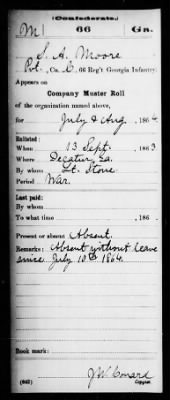 (Confederate.)
M 66 Ga.
S. A. Moore
Pvt, Co. C, 66 Reg't Georgia Infantry.
Appears on
Company Muster Roll
of the organization named above,
for July & Aug, 1864
Enlisted:
When 13 Sept, 1863
Where Decatur, Ga.
By whom Lt. Stone
Period War.
Last paid:
By whom
To what time , 186 .
Present or absent Absent.
Remarks: Absent without leave
since July 10th 1864.
Book mark:
(642) J W Conard
Copyist.